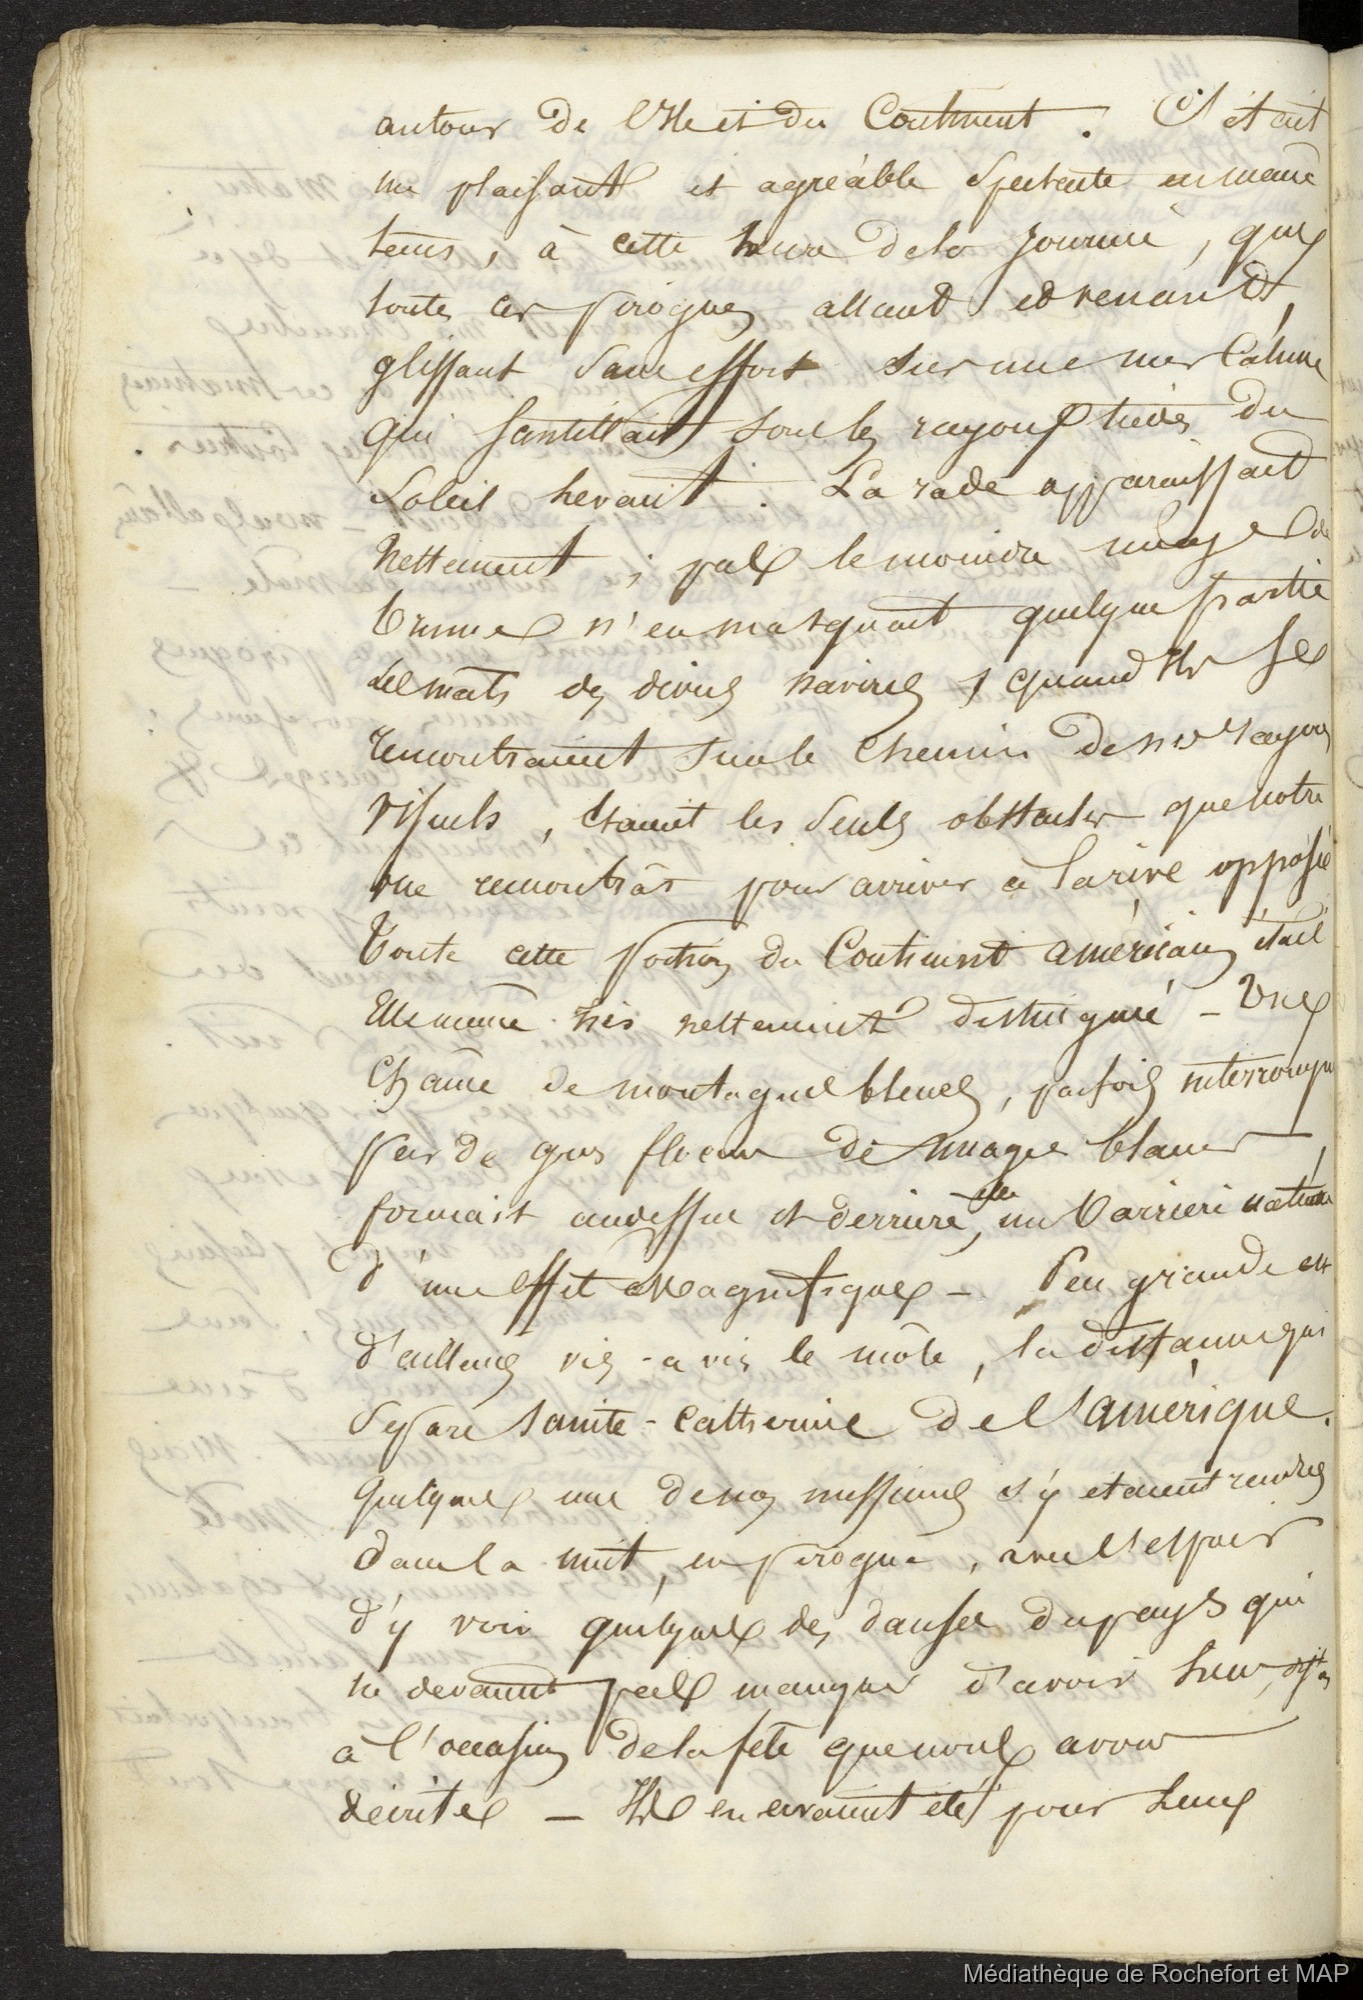 autour de l'Ile et du Continent. C'était
un plaisant et agréable spectacle en même
tems, à cette heure de la journée, que
toutes ces pirogues allant et venant,
glissant sans effort sur une mer calme
qui scintillait sous les rayons tièdes du
soleil levant. La rade apparaissait
nettement, pas le moindre nuage de
brume n'en masquait quelque partie
les mâts des divers navires, quand ils se
rencontraient sur le chemin de nos rayons
visuels, étaient les seuls obstacles que notre
vue rencontrât pour arriver à la rive opposée
Toute cette portion du Continent américain était
elle même très nettement distinguée - Une
chaîne de montagnes bleues, parfois interrompue
par de gros flocons de nuages blancs,
formait au dessus et derrière elle, une barrière naturelle
d'un effet magnifique - Peu grande est
d'ailleurs vis-à-vis le môle, la distance qui
sépare Sainte-Catherine de l'amérique.
Quelques uns de nos messieurs s'y étaient rendus
dans la nuit, en pirogue, avec l'espoir
d'y voir quelques des danses du pays qui
ne devaient pas manquer d'avoir lieu,
à l'occasion de la fête que nous avons
décrite - Ils en avaient été pour leurs